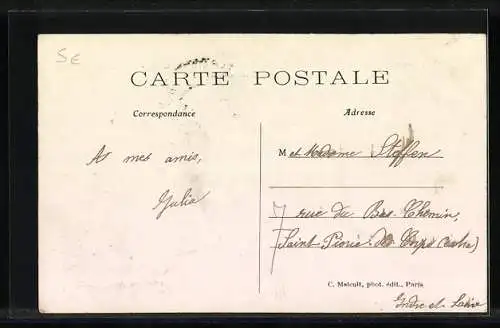 5€
CARTE POSTALE
Correspondance
Adresse
M et Madame Steffen
As mes amis,
Julia
7 rue du Bas-Chemin,
Saint Pierre des Corps
C. Malcuit, phot. édit., Paris
Indre et Loire